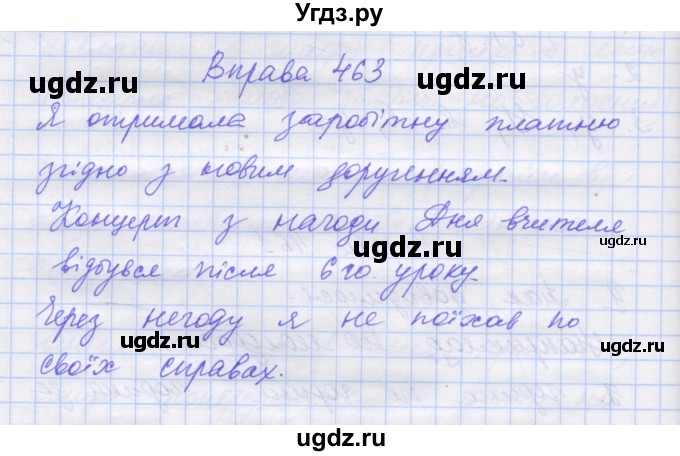 Угдз.ру
Вправа 463
ugdz.ru ugdz.ru
Я отримала заробітну платню
згідно з новим дорученням.
ugdz.ru
Концерт з нагоди Дня вчителя
ugdz.ru ugdz.ru
відбувся після 6го уроку.
ugdz.ru
Через негоду я не поїхав по
ugdz.ru ugdz.ru
своїх справах.
ugdz.ru